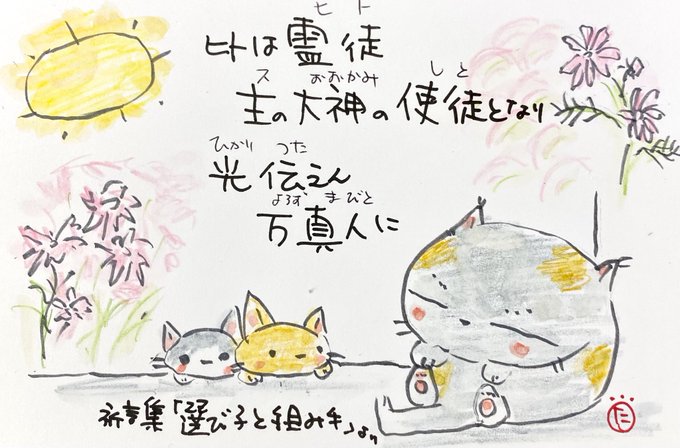 ヒト
ヒトは霊徒
ス おおかみ しと
主の大神の使徒となり
ひかり つた
光伝えん
よろず まびと
万真人に
祈言集「選び子と組み手」より